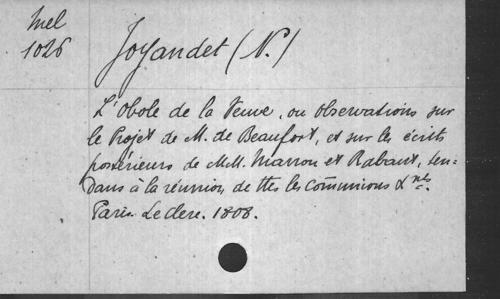 Mel
1026
Joyandet (N.)
L'Obole de la Veuve, ou observations sur
le Projet de M. de Beaufort, et sur les écrits
postérieurs de M.M. Marron et Rabaut, ten=
dans à la réunion de ttes les com̃unions X nes.
Paris. Leclere. 1808.